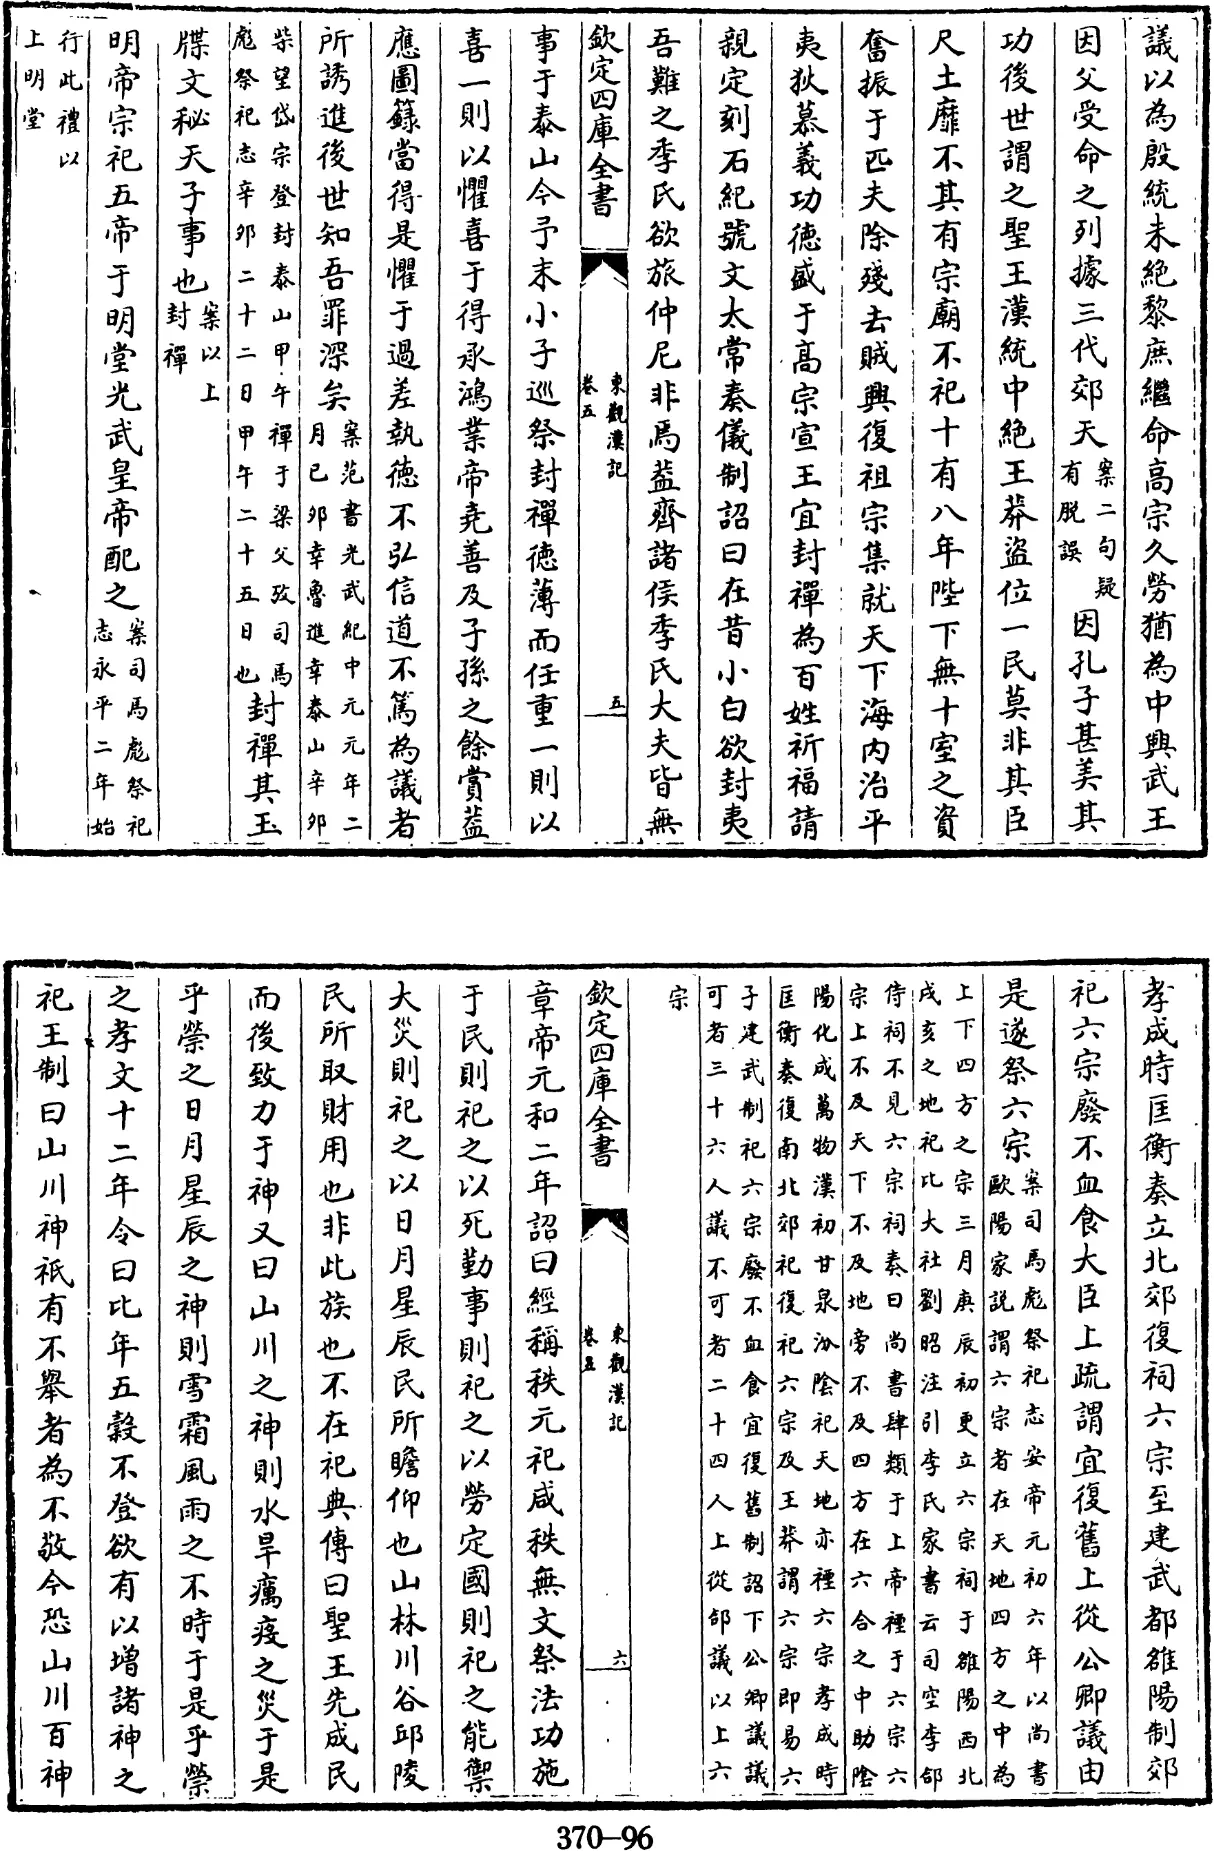 議以為殷統未絶黎庶繼命髙宗久勞猶為中興武王
因父受命之列據三代郊天案二句疑有脱誤因孔子甚美其
功後世謂之聖王漢統中絶王莽盜位一民莫非其臣
尺土靡不其有宗廟不祀十有八年陛下無十室之資
奮振于匹夫除殘去賊興復祖宗集就天下海内治平
夷狄慕義功徳盛于髙宗宣王宜封禪為百姓祈福請
親定刻石紀號文太常奏儀制詔曰在昔小白欲封夷
吾難之季氏欲旅仲尼非焉葢齊諸侯季氏大夫皆無
欽定四庫全書
東觀漢記
卷五
五
事于泰山今予末小子巡祭封禪徳薄而任重一則以
喜一則以懼喜于得承鴻業帝堯善及子孫之餘賞葢
應圖籙當得是懼于過差執徳不弘信道不篤為議者
所誘進後世知吾罪深矣案范書光武紀中元元年二月己卯幸魯進幸泰山辛卯
柴望岱宗登封泰山甲午禪于梁父攷司馬彪祭祀志辛卯二十二日甲午二十五日也封禪其玉
牒文秘天子事也案以上封禪
明帝宗祀五帝于明堂光武皇帝配之案司馬彪祭祀志永平二年始
行此禮以上明堂
孝成時匡衡奏立北郊復祠六宗至建武都雒陽制郊
祀六宗廢不血食大臣上疏謂宜復舊上從公卿議由
是遂祭六宗案司馬彪祭祀志安帝元初六年以尚書歐陽家説謂六宗者在天地四方之中為
上下四方之宗三月庚辰初更立六宗祠于雒陽西北戌亥之地祀比大社劉昭注引李氏家書云司空李郃
侍祠不見六宗祠奏曰尚書肆類于上帝禋于六宗六宗上不及天下不及地旁不及四方在六合之中助陰
陽化成萬物漢初甘泉汾陰祀天地亦禋六宗孝成時匡衡奏復南北郊祀復祀六宗及王莽謂六宗即易六
子建武制祀六宗廢不血食宜復舊制詔下公卿議議可者三十六人議不可者二十四人上從郃議以上六
宗
欽定四庫全書
東觀漢記
卷五
六
章帝元和二年詔曰經稱秩元祀咸秩無文祭法功施
于民則祀之以死勤事則祀之以勞定國則祀之能禦
大災則祀之以日月星辰民所瞻仰也山林川谷邱陵
民所取財用也非此族也不在祀典傳曰聖王先成民
而後致力于神又曰山川之神則水旱癘疫之災于是
乎禜之日月星辰之神則雪霜風雨之不時于是乎禜
之孝文十二年令曰比年五榖不登欲有以增諸神之
祀王制曰山川神祇有不舉者為不敬今恐山川百神
370-96